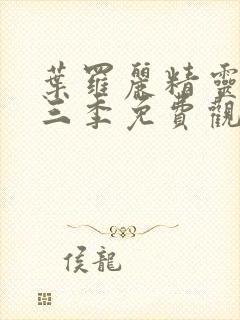 葉羅麗精靈
三季免費觀
侯龍